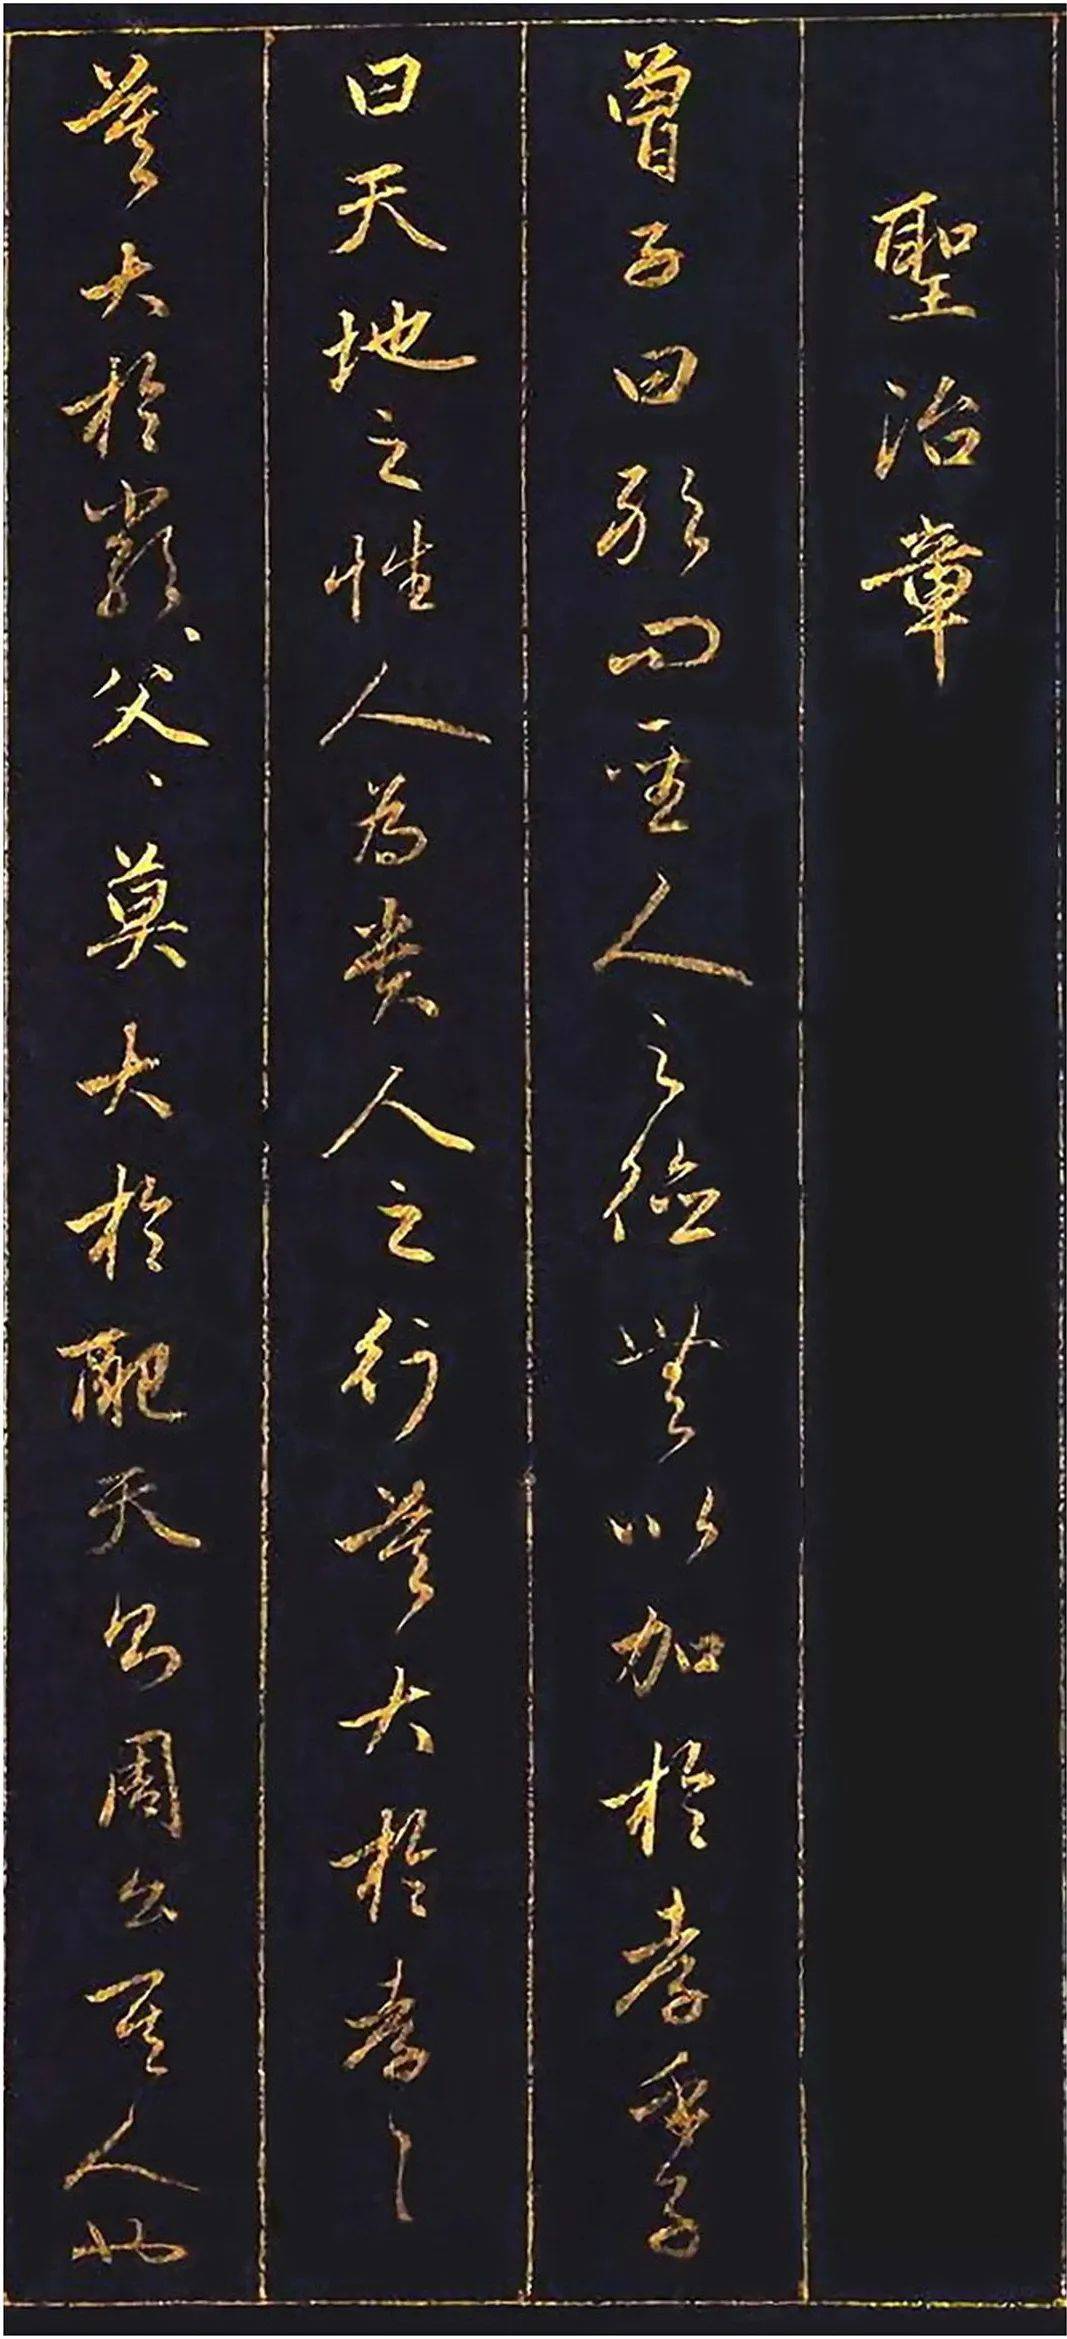 聖治章
曾子曰敢問聖人之德無以加於孝乎子
曰天地之性人為貴人之行莫大於孝〻
莫大於嚴〻父〻莫大於配天則周公其人也